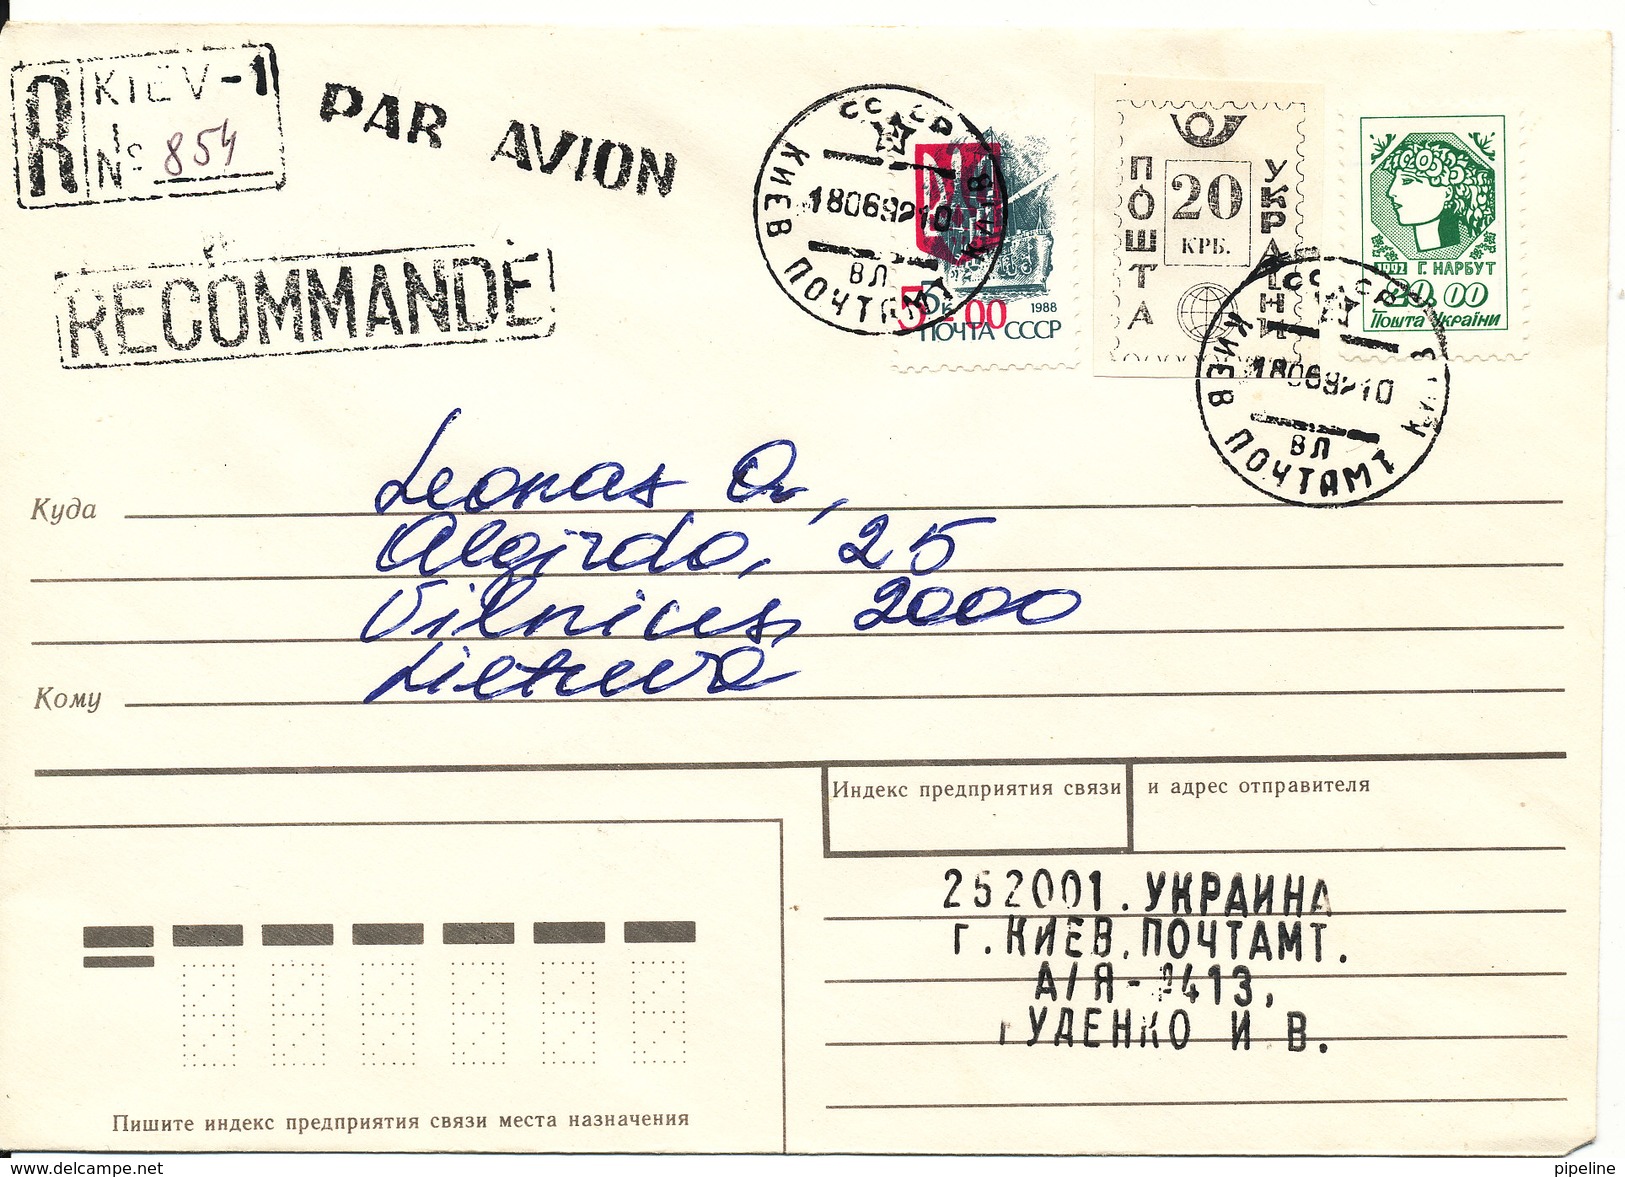 R KIEV-1
№ 854
PAR AVION
RECOMMANDÉ
СССР
КИЕВ ПОЧТАМТ КИЇВ
18069210
ВЛ
5.00
1988
ПОЧТА СССР
ПОШТА
20
КРБ.
УКРАЇНИ
1992 Г. НАРБУТ
20.00
Пошта України
СССР
КИЕВ ПОЧТАМТ
18069210
ВЛ
Куда
Leonas
Algirdo, 25
Vilnius, 2000
Кому
Lietuva
Индекс предприятия связи и адрес отправителя
252001. УКРАИНА
г. КИЕВ, ПОЧТАМТ.
А/Я
ГУДЕНКО И В.
Пишите индекс предприятия связи места назначения
www.delcampe.net
pipeline